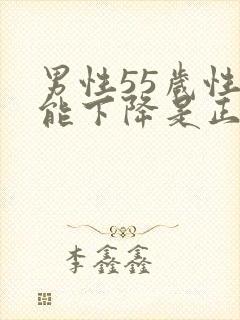 男性55岁性
能下降是正
李鑫鑫